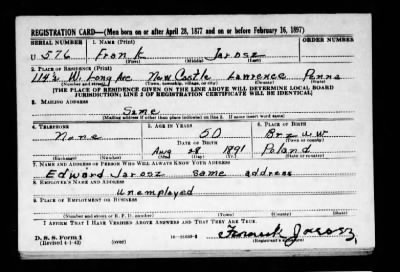 REGISTRATION CARD—(Men born on or after April 28, 1877 and on or before February 16, 1897)
SERIAL NUMBER 1. NAME (Print)
U 576 Frank Jarosz
(First) (Middle) (Last)
2. PLACE OF RESIDENCE (Print)
114½ W. Long Ave New Castle Lawrence Penna
(Number and street) (Town, township, village, or city) (County) (State)
[THE PLACE OF RESIDENCE GIVEN ON THE LINE ABOVE WILL DETERMINE LOCAL BOARD
JURISDICTION; LINE 2 OF REGISTRATION CERTIFICATE WILL BE IDENTICAL]
3. MAILING ADDRESS
Same
[Mailing address if other than place indicated on line 2. If same insert word same]
4. TELEPHONE 5. AGE IN YEARS 6. PLACE OF BIRTH
None 50 Brzuw
DATE OF BIRTH (Town or county)
Aug 28 1891 Poland
(Exchange) (Number) (Mo.) (Day) (Yr.) (State or country)
7. NAME AND ADDRESS OF PERSON WHO WILL ALWAYS KNOW YOUR ADDRESS
Edward Jarosz same address
8. EMPLOYER'S NAME AND ADDRESS
Unemployed
9. PLACE OF EMPLOYMENT OR BUSINESS
(Number and street or R. F. D. number) (Town) (County) (State)
I AFFIRM THAT I HAVE VERIFIED ABOVE ANSWERS AND THAT THEY ARE TRUE.
D. S. S. Form 1
(Revised 4-1-42) (over) Jarosz
(Registrant's signature)